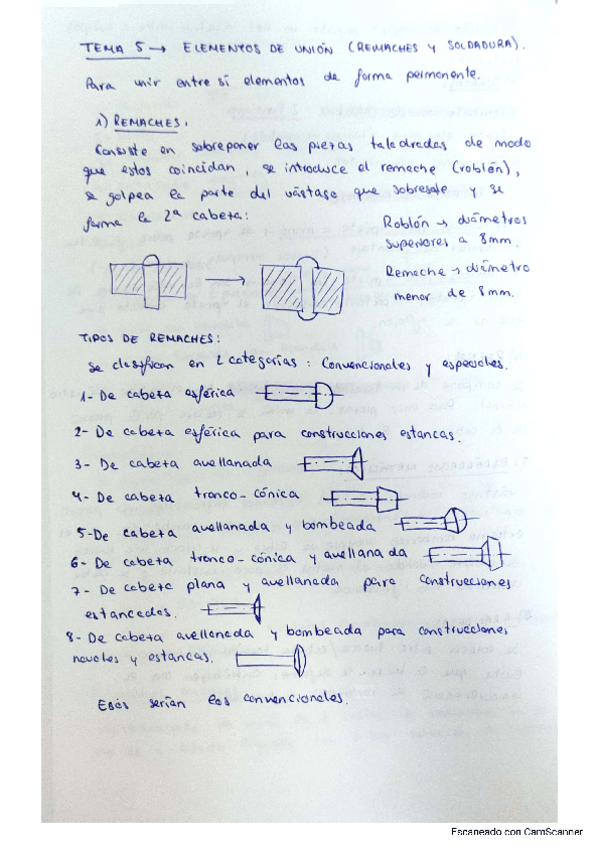 TEMA 5 → ELEMENTOS DE UNIÓN (REMACHES Y SOLDADURA).
Para unir entre sí elementos de forma permanente.
1) REMACHES.
Consiste en sobreponer las piezas taledradas de modo
que estos coincidan, se introduce el remache (roblón),
se golpea la parte del vástago que sobresale y se
forma la 2ª cabeza:
Roblón → diámetros
superiores a 8mm.
Remache → diámetro
menor de 8mm.
TIPOS DE REMACHES:
Se clasifican en 2 categorías: Convencionales y especiales.
1- De cabeza esférica
2- De cabeza esférica para construcciones estancas.
3- De cabeza avellanada
4- De cabeza tronco-cónica
5-De cabeza avellanada y bombeada
6- De cabeza tronco-cónica y avellanada
7- De cabeza plana y avellanada para construcciones
estancadas.
8- De cabeza avellanada y bombeada para construcciones
navales y estancas.
Esos serían los convencionales.
Escaneado con CamScanner